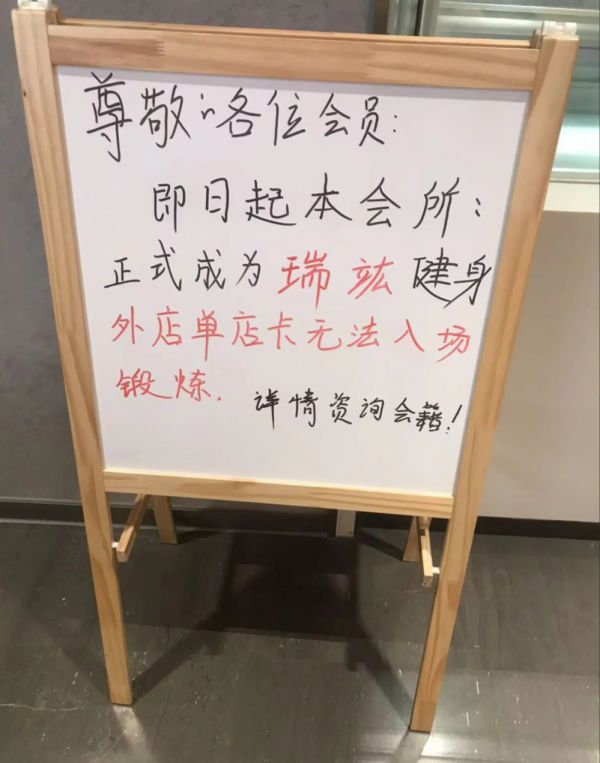 尊敬的各位会员:
即日起本会所:
正式成为瑞竑健身
外店单店卡无法入场
锻炼.
详情资询会籍!